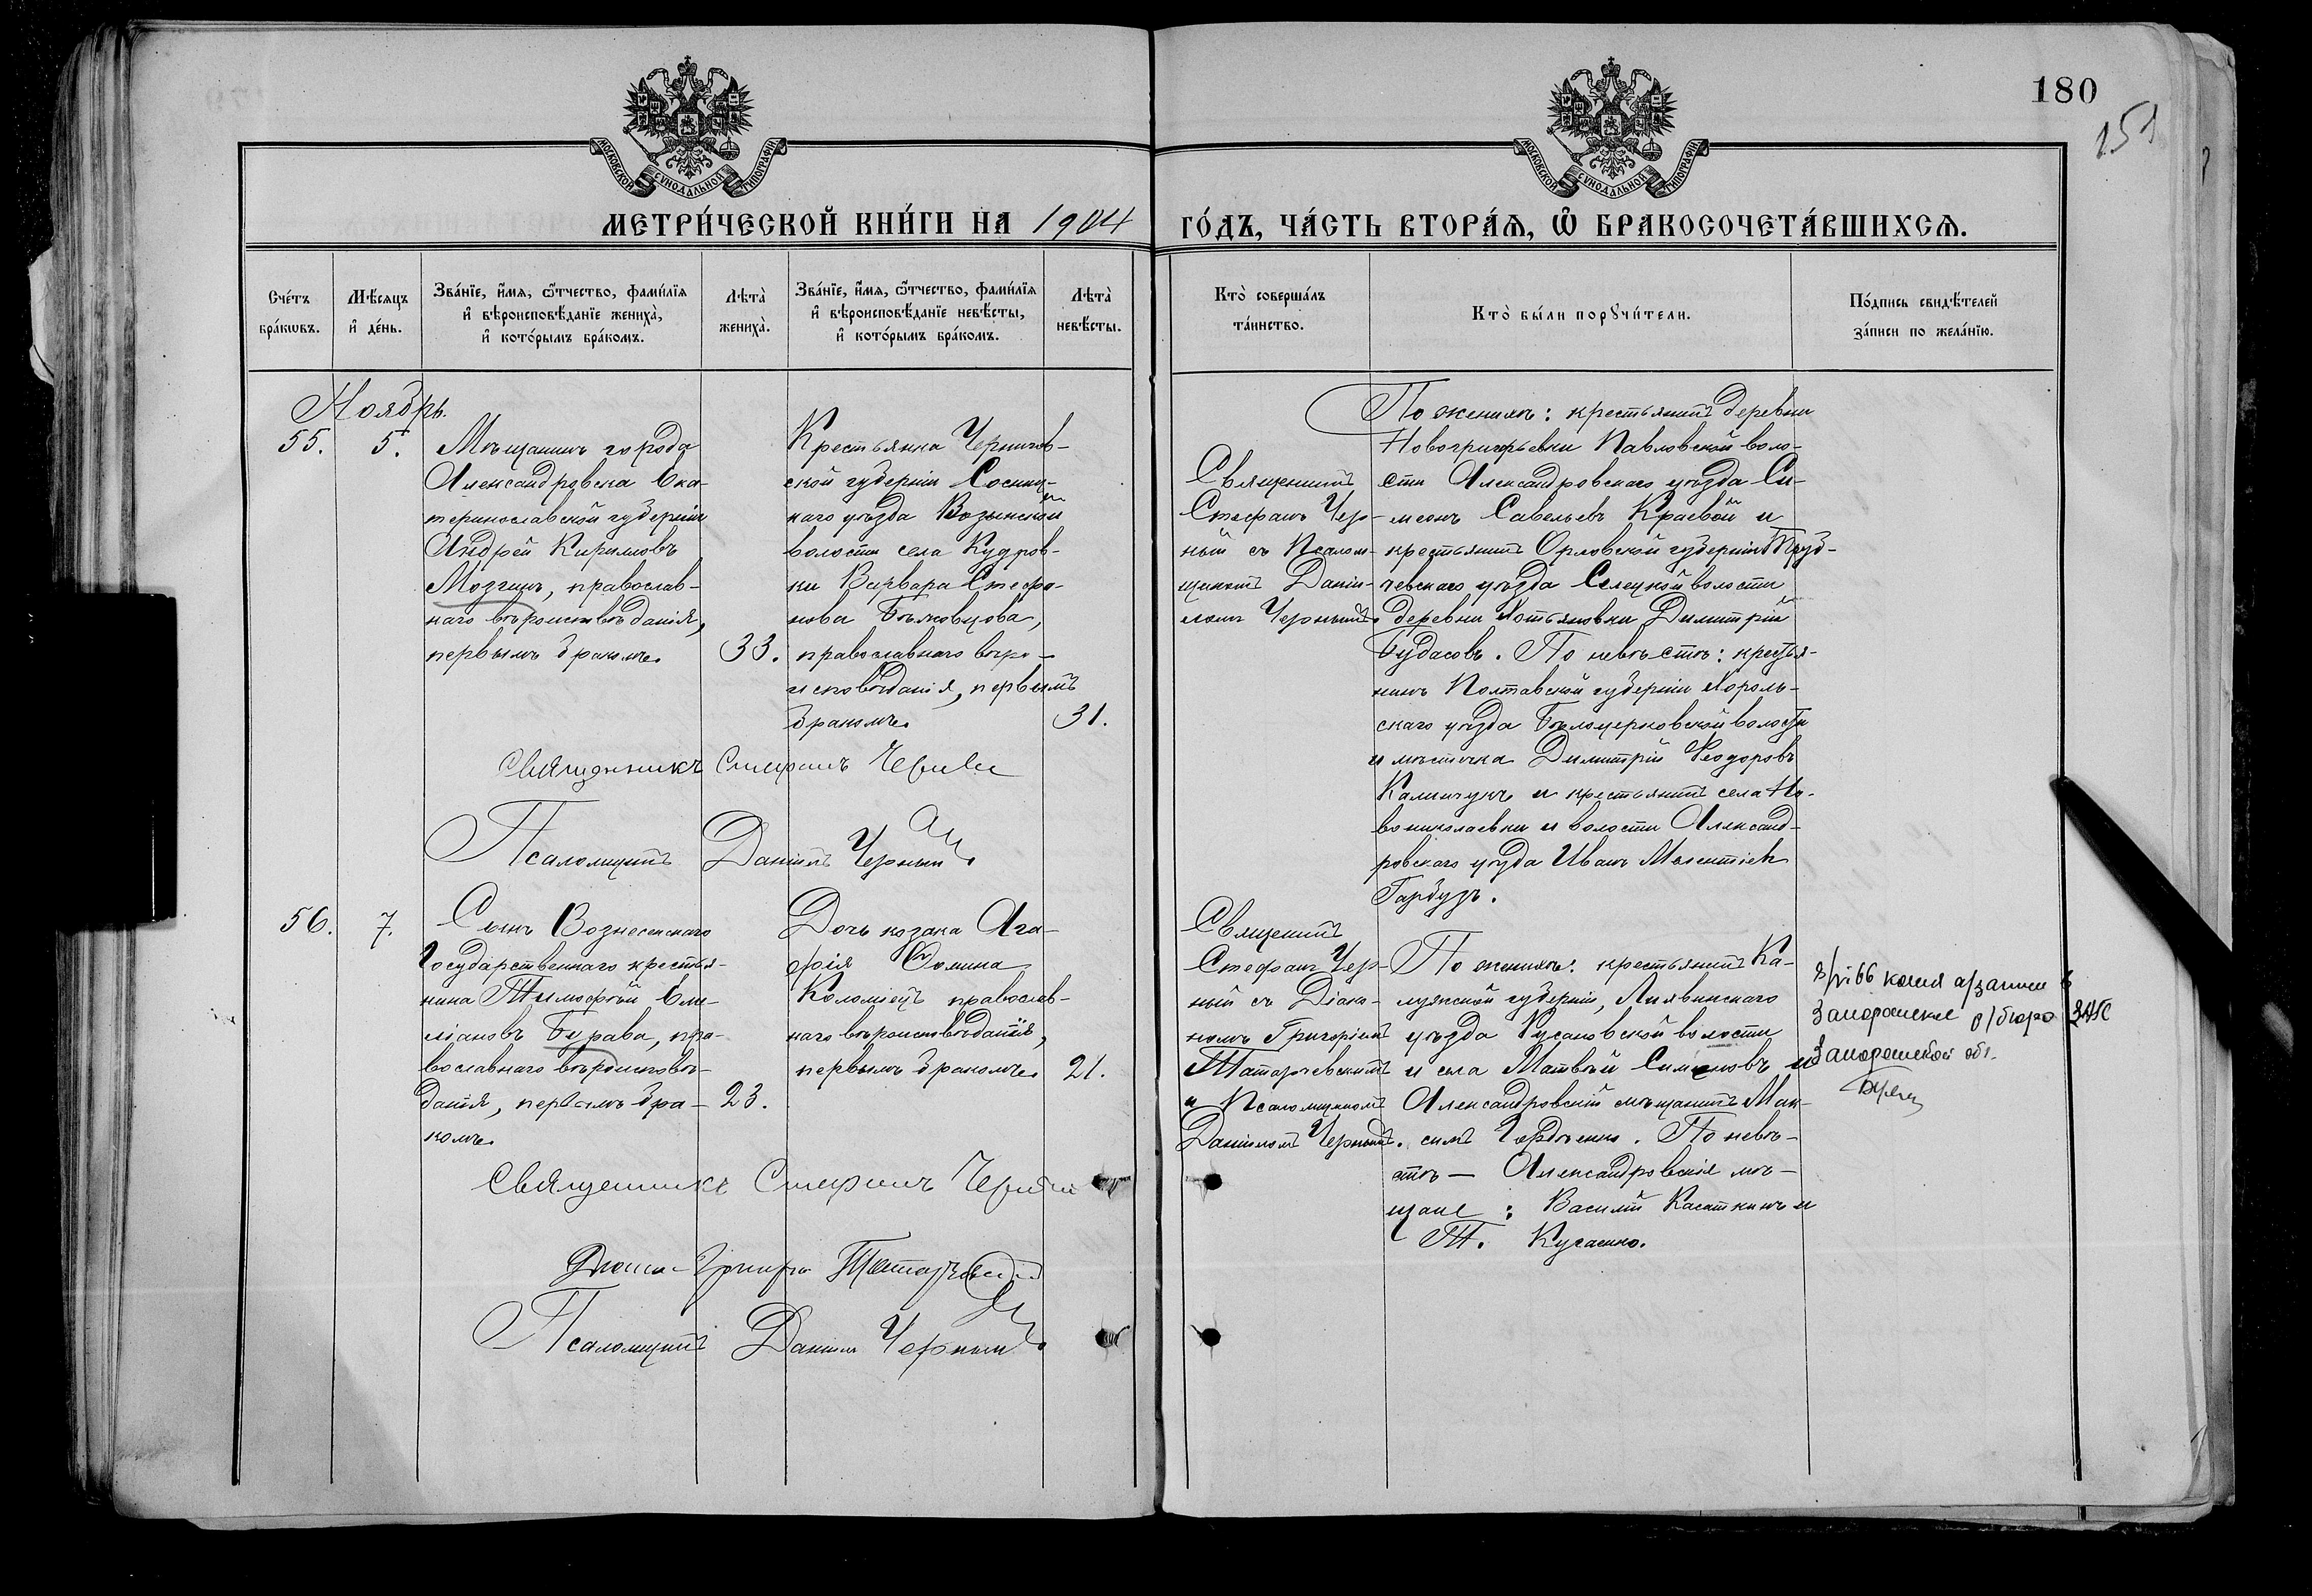 180
151
МОСКОВСКОЙ СѴНОДАЛЬНОЙ ТИПОГРАФІИ
МОСКОВСКОЙ СѴНОДАЛЬНОЙ ТИПОГРАФІИ
МЕТРИ́ЧЕСКОЙ КНИ́ГИ НА 1904
ГО́ДЪ, ЧА́СТЬ ВТОРА́Ѧ, Ѽ БРАКОСОЧЕТА́ВШИХСѦ.
Сче́тъ
бра́кѡвъ.
Мѣ́сяцъ
и҆ де́нь.
Зва́нїе, и҆́мѧ, ѻ҆́тчество, фами́лїѧ
и҆ вѣроисповѣ́данїе жениха̀,
и҆ кото́рымъ бра́комъ.
Лѣта̀
жениха̀.
Зва́нїе, и҆́мѧ, ѻ҆́тчество, фами́лїѧ
и҆ вѣроисповѣ́данїе невѣ́сты,
и҆ кото́рымъ бра́комъ.
Лѣта̀
невѣ́сты.
Кто̀ соверша́лъ
та́инство.
Кто̀ бы́ли порꙋчи́тели.
По́дпись свидѣ́телей
за́писи по жела́нїю.
Ноябрь.
55.
5.
Мѣщанинъ города
Александровска Ека-
теринославской губерніи
Андрей Кириловъ
Мозгинъ, православ-
наго вѣроисповѣданія,
первымъ бракомъ.
33.
Крестьянка Чернигов-
ской губерніи Сосниц-
каго уѣзда Волынской
волости села Кудров-
ки Варвара Стефа-
нова Бѣлковцова,
православнаго вѣро-
исповѣданія, первымъ
бракомъ.
31.
Священникъ
Стефанъ Чер-
ный съ Псалом-
щикомъ Дані-
иломъ Чернымъ.
По женихѣ: крестьянинъ деревни
Новогригорьевки Павловской воло-
сти Александровскаго уѣзда Си-
меонъ Савельевъ Краевой и
крестьянинъ Орловской губерніи Труб-
чевскаго уѣзда Селецкой волости
деревни Хотьяновки Димитрій
Будасовъ. По невѣстѣ: крестья-
нинъ Полтавской губерніи Хороль-
скаго уѣзда Бѣлоцерковской волости
и мѣстечка Димитрій Ѳеодоровъ
Калинчукъ и крестьянинъ села Но-
вониколаевки и волости Александ-
ровскаго уѣзда Иванъ Мелентіевъ
Гарбузъ.
Священникъ Стефанъ Черный
Псаломщикъ Даніилъ Черный.
56.
7.
Сынъ Вознесенскаго
Государственнаго крестья-
нина Тимофей Еми-
ліановъ Бурава, пра-
вославнаго вѣроисповѣ-
данія, первымъ бра-
комъ.
23.
Дочь козака Ага-
фія Ѳомина
Коломіецъ православ-
наго вѣроисповѣданія,
первымъ бракомъ.
21.
Священникъ
Стефанъ Чер-
ный съ Діако-
номъ Григоріемъ
Татарчевскимъ
и Псаломщикомъ
Даніиломъ Чернымъ.
По женихѣ: крестьянинъ Ка-
лужской губерніи, Лихвинскаго
уѣзда Русановской волости
и села Матвѣй Симоновъ и
Александровскій мѣщанинъ Мак-
симъ Гордѣенко. По невѣ-
стѣ — Александровскіе мѣ-
щане: Василій Касаткинъ и
Т. Кусаско.
копия а/записи в
Запорожское о/бюро ЗАГС
Запорожской обл.
Священникъ Стефанъ Черный
Татарчевскій
Псаломщикъ Даніилъ Черный.